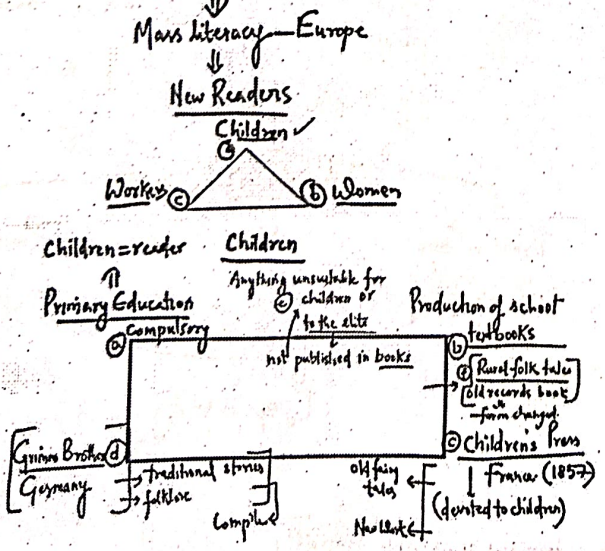 Mass literacy — Europe
⇓
New Readers
Children ✓
(a)
Workers (c) (b) Women
Children = reader
⇑
Primary Education
(a) Compulsory
Children
Anything unsuitable for
(e) children or
to the elite
↓
not published in books
Production of school
textbooks
(b)
(f) Rural-folk tales
old records book
form changed
(c) Children's Press
France (1857)
(devoted to children)
old fairy
tales
New work
Grimm Brother (d)
Germany
→ traditional stories
→ folklore
Compile